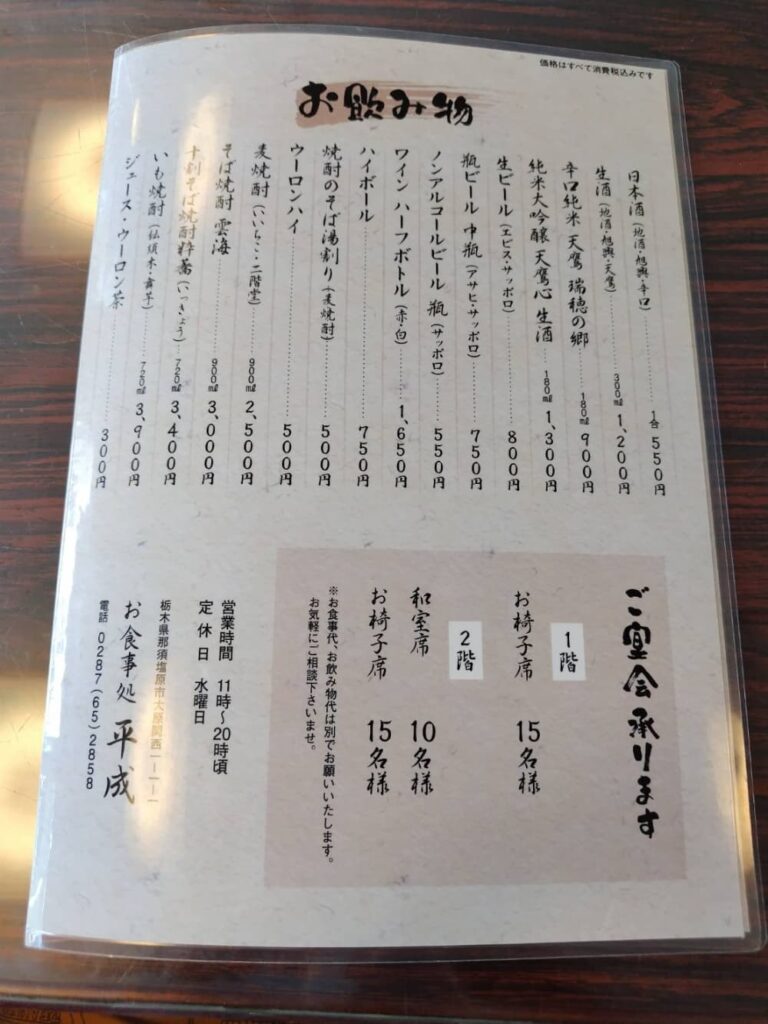 価格はすべて消費税込みです
お飲み物
日本酒（地酒・旭興・辛口） 1合 550円
生酒（地酒・旭興・天鷹） 300㎖ 1,200円
辛口純米 天鷹 瑞穂の郷 180㎖ 900円
純米大吟醸 天鷹心 生酒 180㎖ 1,300円
生ビール（エビス・サッポロ） 800円
瓶ビール 中瓶（アサヒ・サッポロ） 750円
ノンアルコールビール 瓶（サッポロ） 550円
ワイン ハーフボトル（赤・白） 1,650円
ハイボール 750円
焼酎のそば湯割り（麦焼酎） 500円
ウーロンハイ 500円
麦焼酎（いいちこ・二階堂） 900㎖ 2,500円
そば焼酎 雲海 900㎖ 3,000円
十割そば焼酎粋蕎（いっきょう） 720㎖ 3,400円
いも焼酎 720㎖ 3,900円
ジュース・ウーロン茶 300円
ご宴会承ります
1階
お椅子席 15名様
2階
和室席 10名様
お椅子席 15名様
※お食事代、お飲み物代は別でお願いいたします。
お気軽にご相談下さいませ。
営業時間 11時〜20時頃
定休日 水曜日
栃木県那須塩原市大原間西
お食事処 平成
電話 0287(65)2858